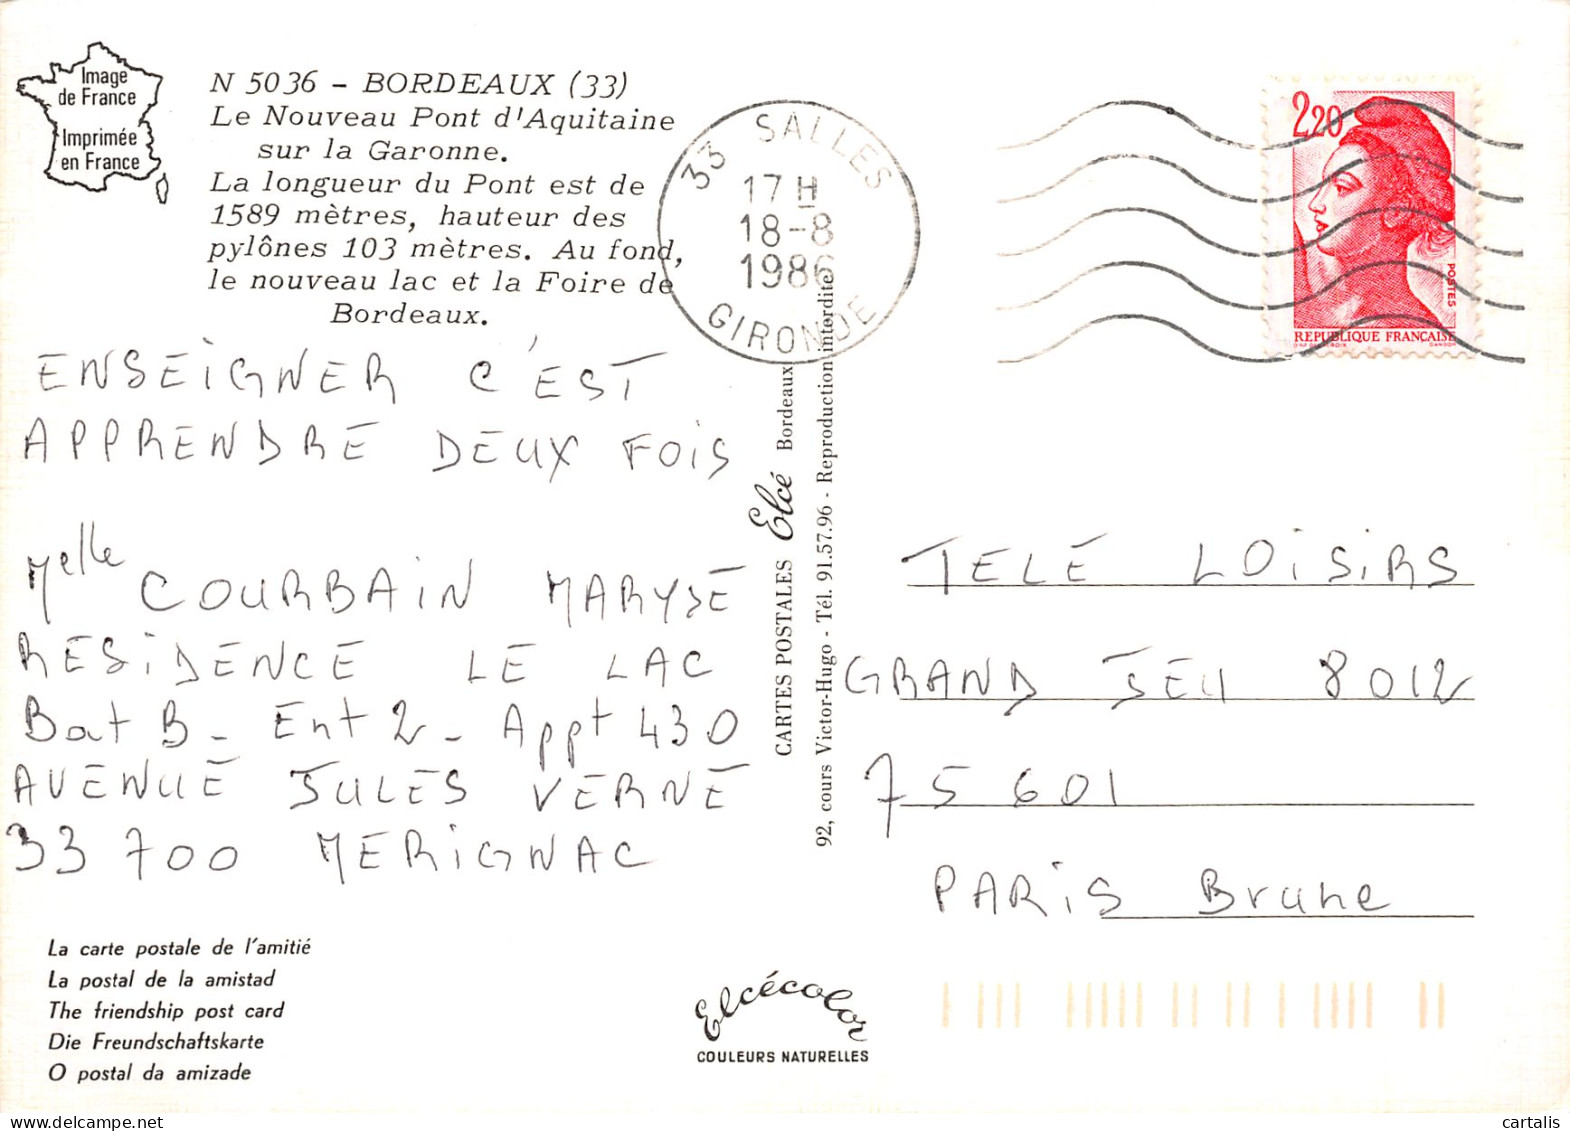 Image
de France
Imprimée
en France
N 5036 - BORDEAUX (33)
Le Nouveau Pont d'Aquitaine
sur la Garonne.
La longueur du Pont est de
1589 mètres, hauteur des
pylônes 103 mètres. Au fond,
le nouveau lac et la Foire de
Bordeaux.
33 SALLES
17 H
18-8
1986
GIRONDE
2,20
POSTES
REPUBLIQUE FRANÇAISE
ENSEIGNER C'EST
APPRENDRE DEUX FOIS
Melle COURBAIN MARYSE
RESIDENCE LE LAC
Bat B - Ent 2 - Appt 430
AVENUE JULES VERNE
33 700 MERIGNAC
CARTES POSTALES Elcé Bordeaux
92, cours Victor-Hugo - Tél. 91.57.96 - Reproduction interdite
TELE LOISIRS
GRAND JEU 8012
75 601
PARIS Brune
La carte postale de l'amitié
La postal de la amistad
The friendship post card
Die Freundschaftskarte
O postal da amizade
Elcécolor
COULEURS NATURELLES
cartalis